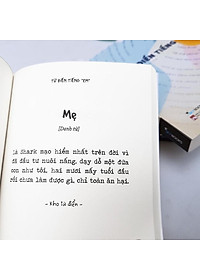 TỪ ĐIỂN TIẾNG "EM"
Mẹ
[Danh từ]
là Shark mạo hiểm nhất trên đời vì
đã đầu tư nuôi nấng, dạy dỗ một đứa
con như tôi, hai mươi mấy tuổi đầu
rồi chưa làm được gì, chỉ toàn ăn hại.
- Kho từ điển -
ĐIỂN TIẾNG